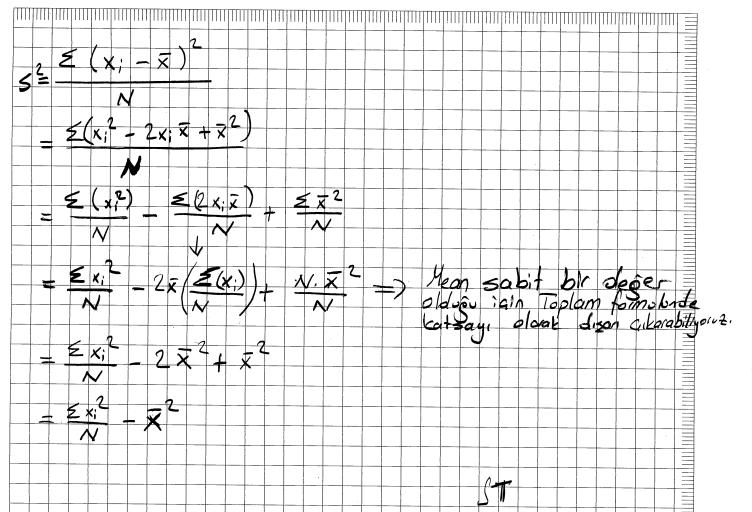 s² = Σ (xᵢ - x̄)² / N
= Σ(xᵢ² - 2xᵢ x̄ + x̄²) / N
= Σ (xᵢ²) / N - Σ(2xᵢx̄) / N + Σ x̄² / N
↓
= Σ xᵢ² / N - 2x̄ (Σ(xᵢ) / N) + N. x̄² / N ⇒ Mean sabit bir değer
olduğu için Toplam formülünde
katsayı olarak dışarı çıkarabiliyoruz.
= Σ xᵢ² / N - 2 x̄² + x̄²
= Σ xᵢ² / N - x̄²